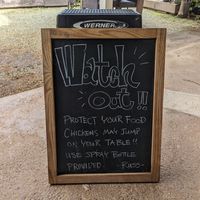 WERNER
Watch
out!!
PROTECT YOUR FOOD
CHICKENS MAY JUMP
ON YOUR TABLE!!
USE SPRAY BOTTLE
PROVIDED. -Russ-